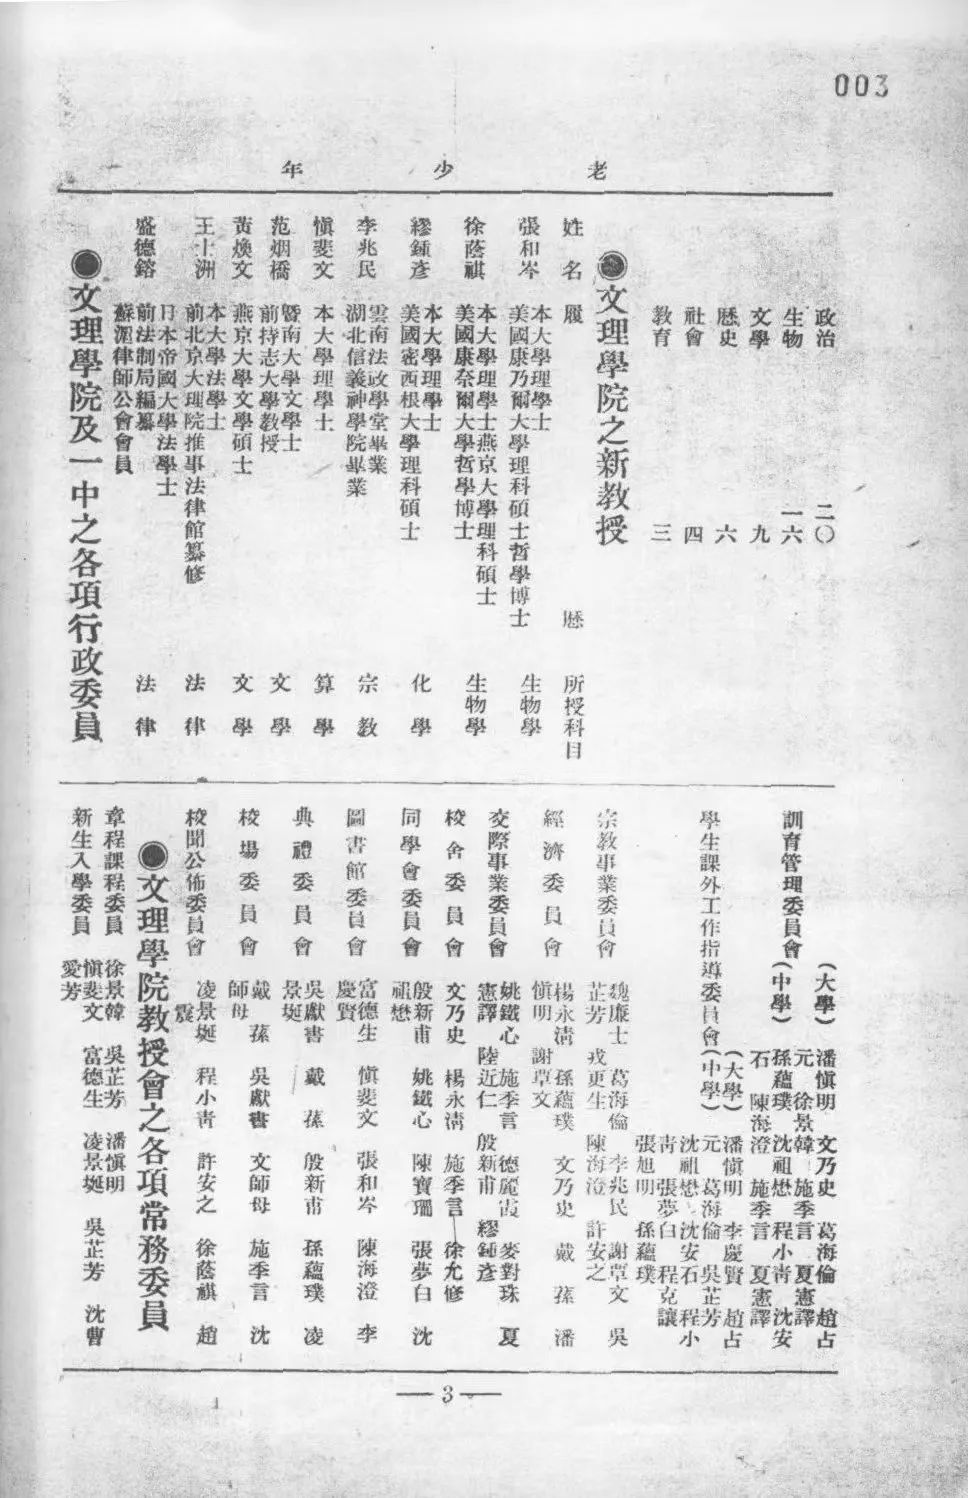 003
老少年
政治　二〇
生物　一六
文學　九
歷史　六
社會　四
教育　三
●文理學院之新教授
姓名　履歷　所授科目
張和岑　本大學理學士　生物學
美國康乃爾大學理科碩士哲學博士
徐蔭祺　本大學理學士燕京大學理科碩士　生物學
美國康奈爾大學哲學博士
繆鍾彥　本大學理學士　化學
美國密西根大學理科碩士
李兆民　雲南法政學堂畢業　宗教
湖北信義神學院畢業
愼斐文　本大學理學士　算學
范烟橋　暨南大學文學士　文學
前持志大學教授
黃煥文　燕京大學文學碩士　文學
王士洲　本大學法學士　法律
前北京大理院推事法律館纂修
盛德鎔　日本帝國大學法學士　法律
前法制局編纂
蘇滬律師公會會員
●文理學院及一中之各項行政委員
訓育管理委員會
（大學）潘愼明　文乃史　葛海倫　趙占
元　徐景韓　施季言　夏憲譯
（中學）孫蘊璞　沈祖懋　程小靑　沈安
石　陳海澄　施季言　夏憲譯
學生課外工作指導委員會
（大學）潘愼明　李慶賢　趙占
元　葛海倫　吳芷芳
（中學）沈祖懋　沈安石　程小
靑　張夢白　程克讓
張旭明　孫蘊璞
宗教事業委員會　魏廉士　葛海倫　李兆民　謝覃文　吳
芷芳　戎更生　陳海澄　許安之
經濟委員會　楊永淸　孫蘊璞　文乃史　戴蓀　潘
愼明　謝覃文
交際事業委員會　姚鐵心　施季言　德麗霞　麥對珠　夏
憲譯　陸近仁　殷新甫　繆鍾彥
校舍委員會　文乃史　楊永淸　施季言　徐允修
同學會委員會　殷新甫　姚鐵心　陳寶珊　張夢白　沈
祖懋
圖書館委員會　富德生　愼斐文　張和岑　陳海澄　李
慶賢
典禮委員會　吳獻書　戴蓀　殷新甫　孫蘊璞　凌
景埏
校場委員會　戴蓀　吳獻書　文師母　施季言　沈
師母
校聞公佈委員會　凌景埏　程小靑　許安之　徐蔭祺　趙
震
●文理學院教授會之各項常務委員
章程課程委員　徐景韓　吳芷芳　潘愼明
新生入學委員　愼斐文　富德生　凌景埏　吳芷芳　沈曹
愛芳
—3—